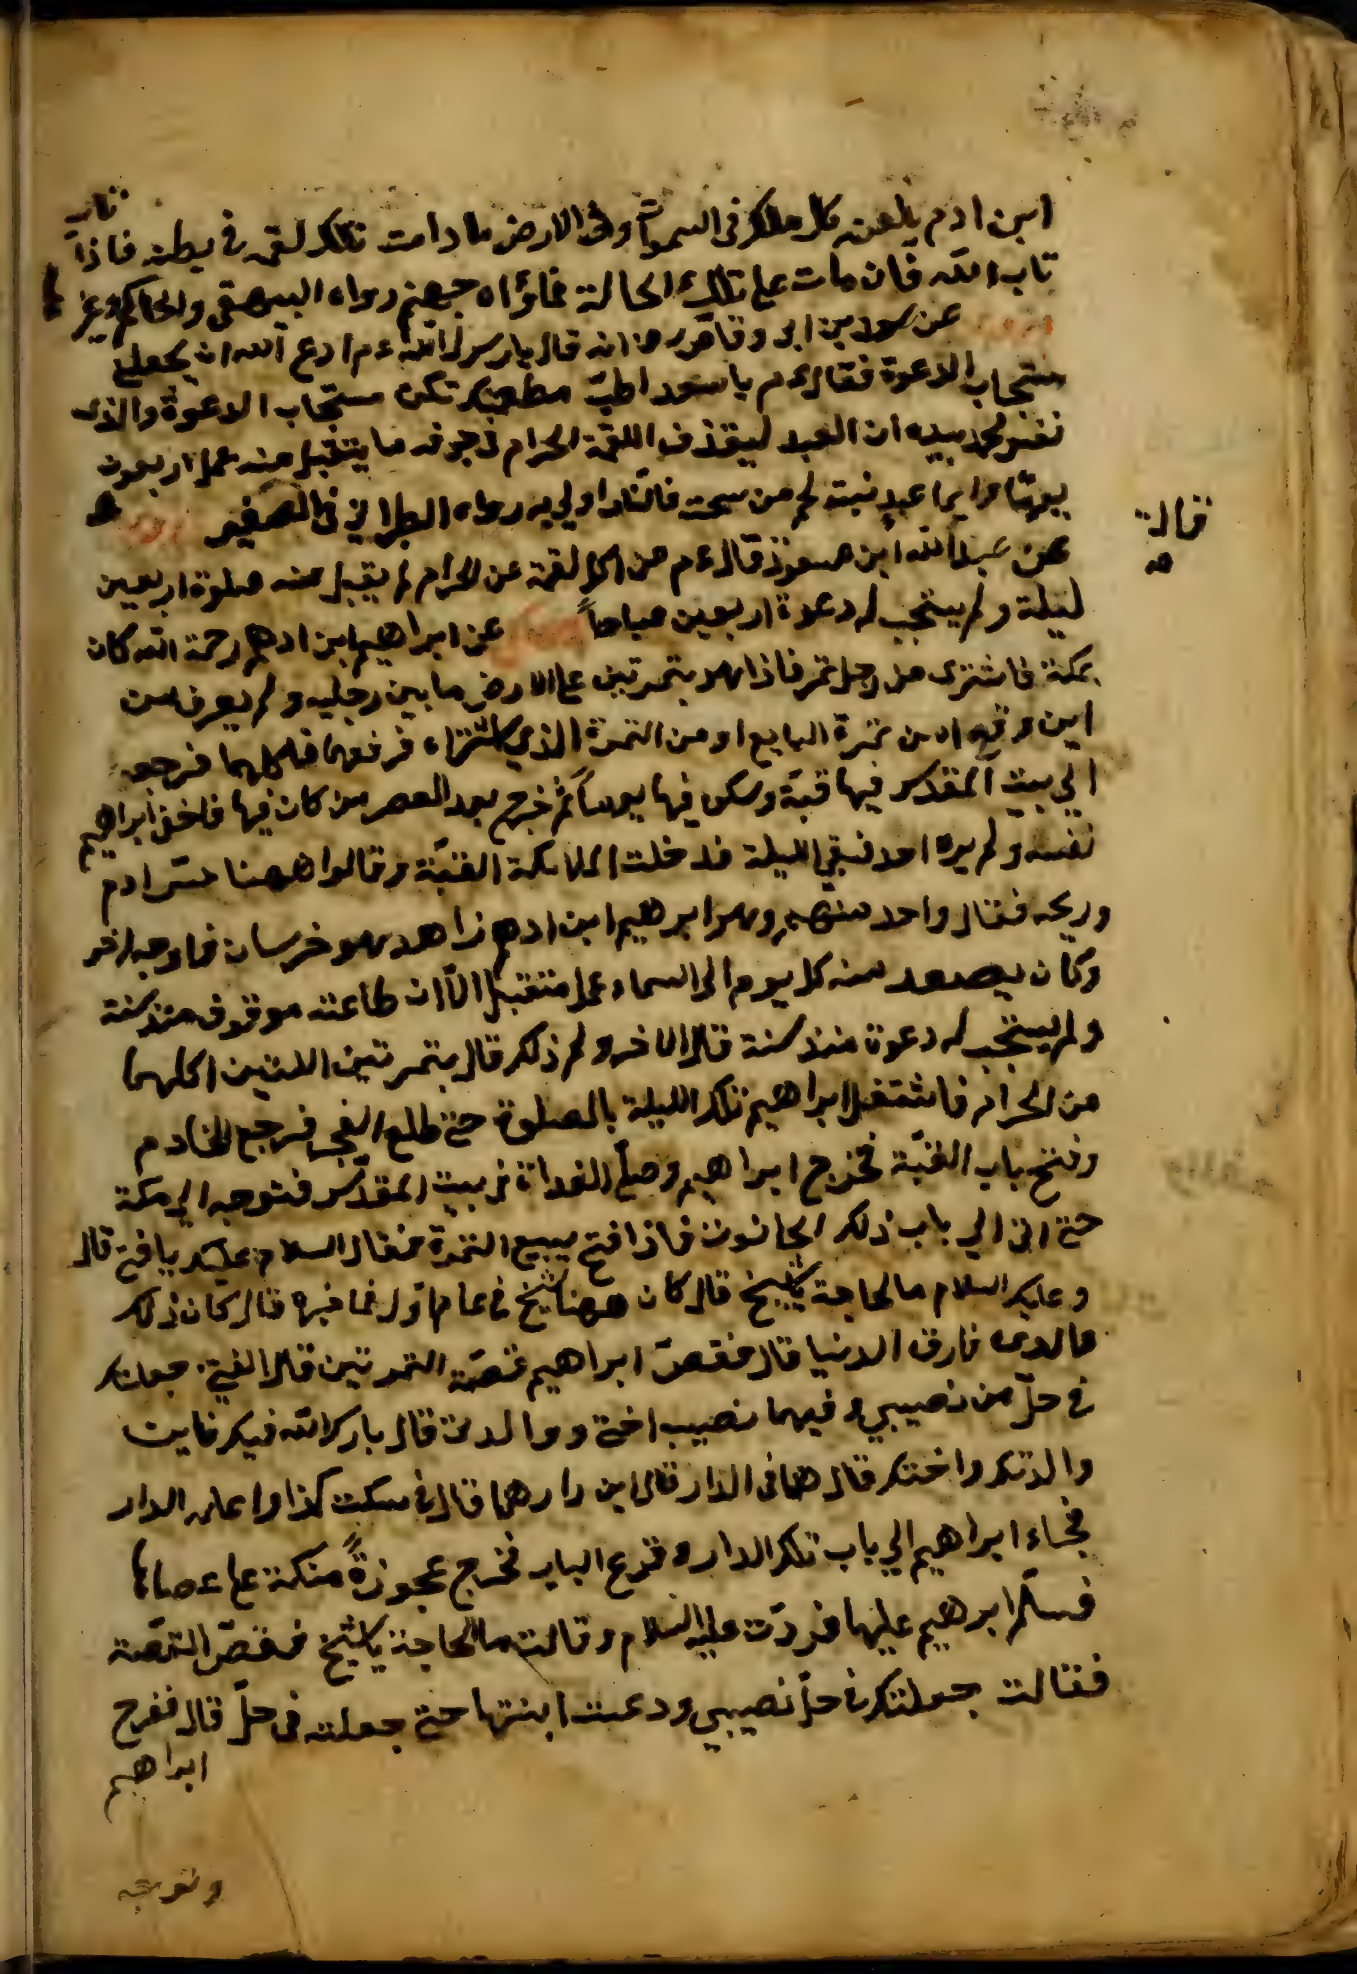 ابن ادم يلعنه كل ملك فى السموات وفى الارض ما دامت تلك لقمه فى بطنه فاذا تاب
تاب الله فان مات على تلك الحالة فماواه جهنم رواه البيهقى والحاكم وغير
عن سعد بن ابى وقاص رض انه قال يا رسول الله عم ادع الله ان يجعلنى
مستجاب الدعوة فقال عم يا سعد اطب مطعمك تكن مستجاب الدعوة والذى
نفس محمد بيده ان العبد ليقذف اللقمة الحرام فى جوفه ما يتقبل منه عمل اربعون
يومًا وايما عبد نبت لحم من سحت فالنار اولى به رواه الطبرانى فى الصغير
عن عبد الله ابن مسعود قال عم من اكل لقمة عن الحرام لم يقبل منه صلوة اربعين
ليلة ولم يستجب له دعوة اربعين صباحاً عن ابراهيم ابن ادهم رحمة الله كان
بمكة فاشترى من رجل تمر فاذا هو بتمرتين على الارض ما بين رجليه ولم يعرف من
اين وقع اه من تمرة البايع او من التمرة الذي اشتراه فرفعهما فاكلهما فرجع
الي بيت المقدس فيها قبة وسكن فيها يوماً ثم خرج بعد العصر من كان فيها فاخفى ابراهيم
نفسه ولم يره احد فبقى الليلة فدخلت الملائكة القبة وقالوا ههنا حس ادم
وريحه فقال واحد منهم وهو ابرهيم ابن ادهم زاهد هو خرسان فاوجه اخر
وكان يصعد منه كل يوم الى السماء عمل متقبل الاّ ان طاعته موقوف منذ سنة
ولم يستجب له دعوة منذ سنة قال الاخر ولم ذلك قال بتمرتين اللتين اكلهما
من الحرام فاشتغل ابراهيم تلك الليلة بالصلوة حتى طلع الفجر فرجع الخادم
وفتح باب القبة فخرج ابراهيم وصلى الغداة فى بيت المقدس فتوجه الي مكة
حتى اتى الي باب ذلك الحانوت فاذا فتى يبيع التمرة فقال السلام عليك يا فتى قال
وعليك السلام ما لحاجة يا شيخ قال كان ههنا شيخ فى عام اول فما خبره قال كان ذلك
والدى فارق الدنيا قال فقصّ ابراهيم قصة التمرتين قال الفتى جعلتك
فى حلّ من نصيبي وفيهما نصيب اختى ووالدتى قال بارك الله فيك فاين
والدتك واختك قال هما فى الدار قال اين دارهما قال فى سكت كذا واعلمه الدار
فجاء ابراهيم الي باب تلك الدار وقرع الباب فخرج عجوزةً متكئة على عصاها
فسلّم ابرهيم عليها فردّت عليه السلام وقالت ما لحاجة يا شيخ فقصّ القصة
فقالت جعلتك فى حلّ نصيبي ودعت ابنتها حتى جعلت فى حلّ قال ففرح
ابراهيم
قالت